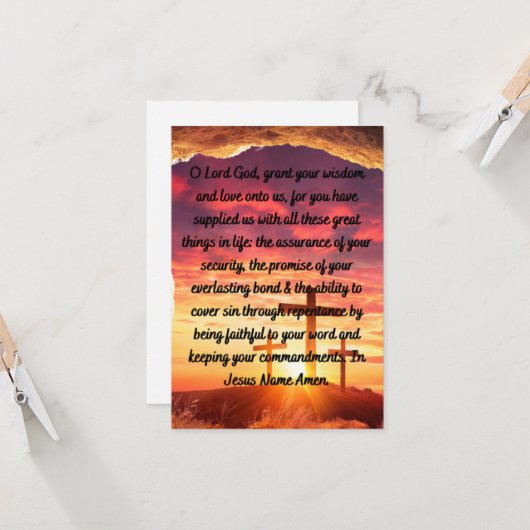 O Lord God, grant your wisdom
and love onto us, for you have
supplied us with all these great
things in life: the assurance of your
security, the promise of your
everlasting bond & the ability to
cover sin through repentance by
being faithful to your word and
keeping your commandments. In
Jesus Name Amen.